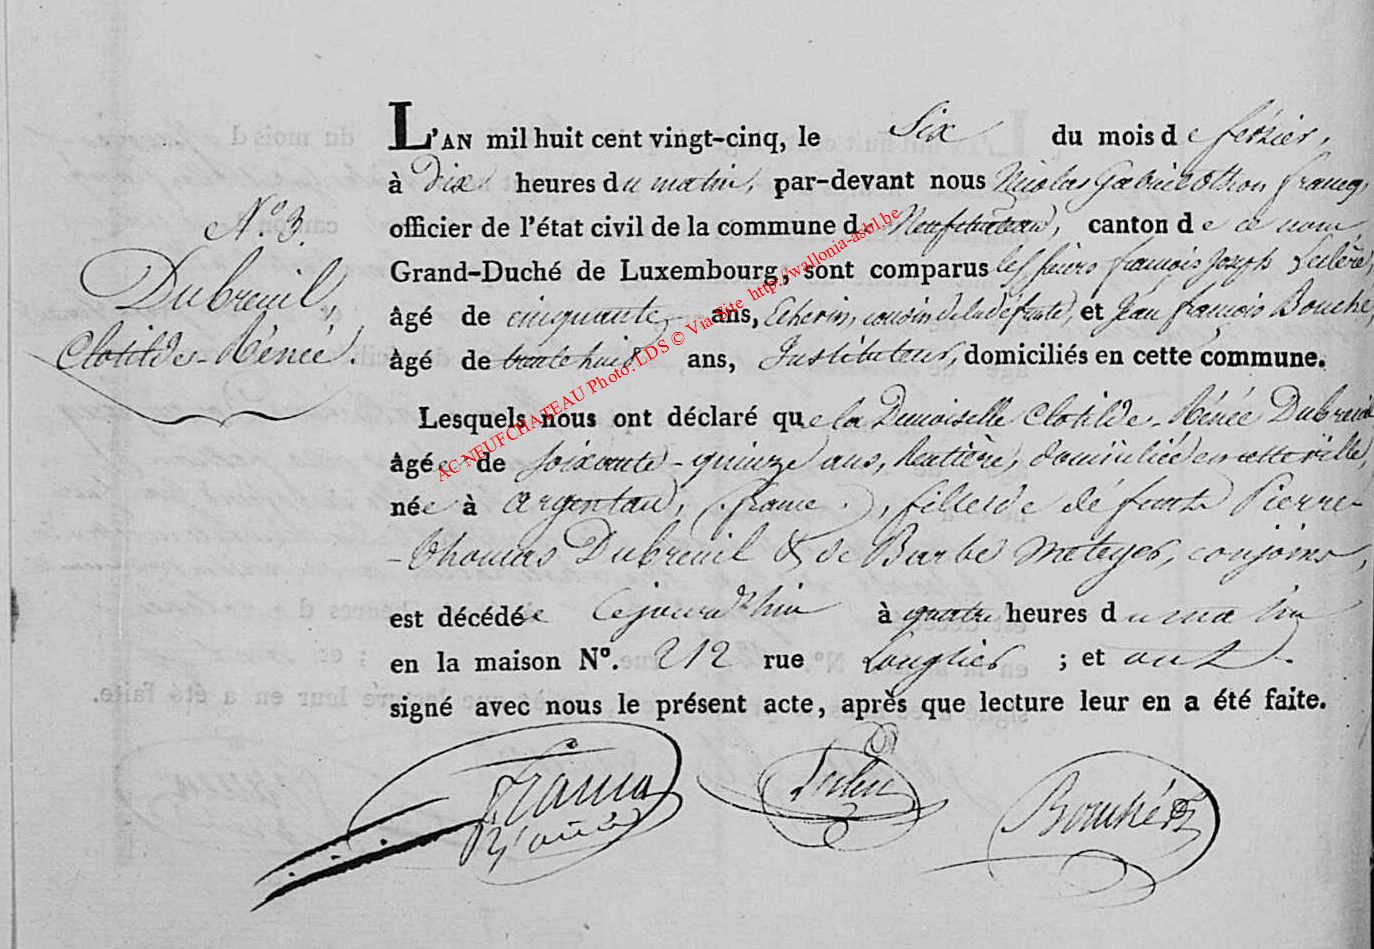 N.º 3.
Dubreuil,
Clotilde-Rénée.
L'AN mil huit cent vingt-cinq, le Six du mois de février,
à dix heures du matin, par-devant nous Nicolas Gabriel Othon Francq,
officier de l'état civil de la commune de Neufchateau, canton de ce nom,
Grand-Duché de Luxembourg, sont comparus les sieurs françois Joseph
âgé de cinquante ans, Echevin, cousin de la défunte, et Jean françois Bouché,
âgé de trente huit ans, Instituteur, domiciliés en cette commune.
Lesquels nous ont déclaré que la Dmoiselle Clotilde-Rénée Dubreuil
âgée de soixante-quinze ans, Rentière, domiciliée en cette ville,
née à argentau, (france), fille de défunts Pierre-
-Thomas Dubreuil & de Barbe conjoins,
est décédée cejourd'hui à quatre heures du matin
en la maison Nº. 212 rue Longlier ; et ont
signé avec nous le présent acte, après que lecture leur en a été faite.
Bouché
AC NEUFCHATEAU Photo: LDS © Via Site http://wallonia-asbl.be